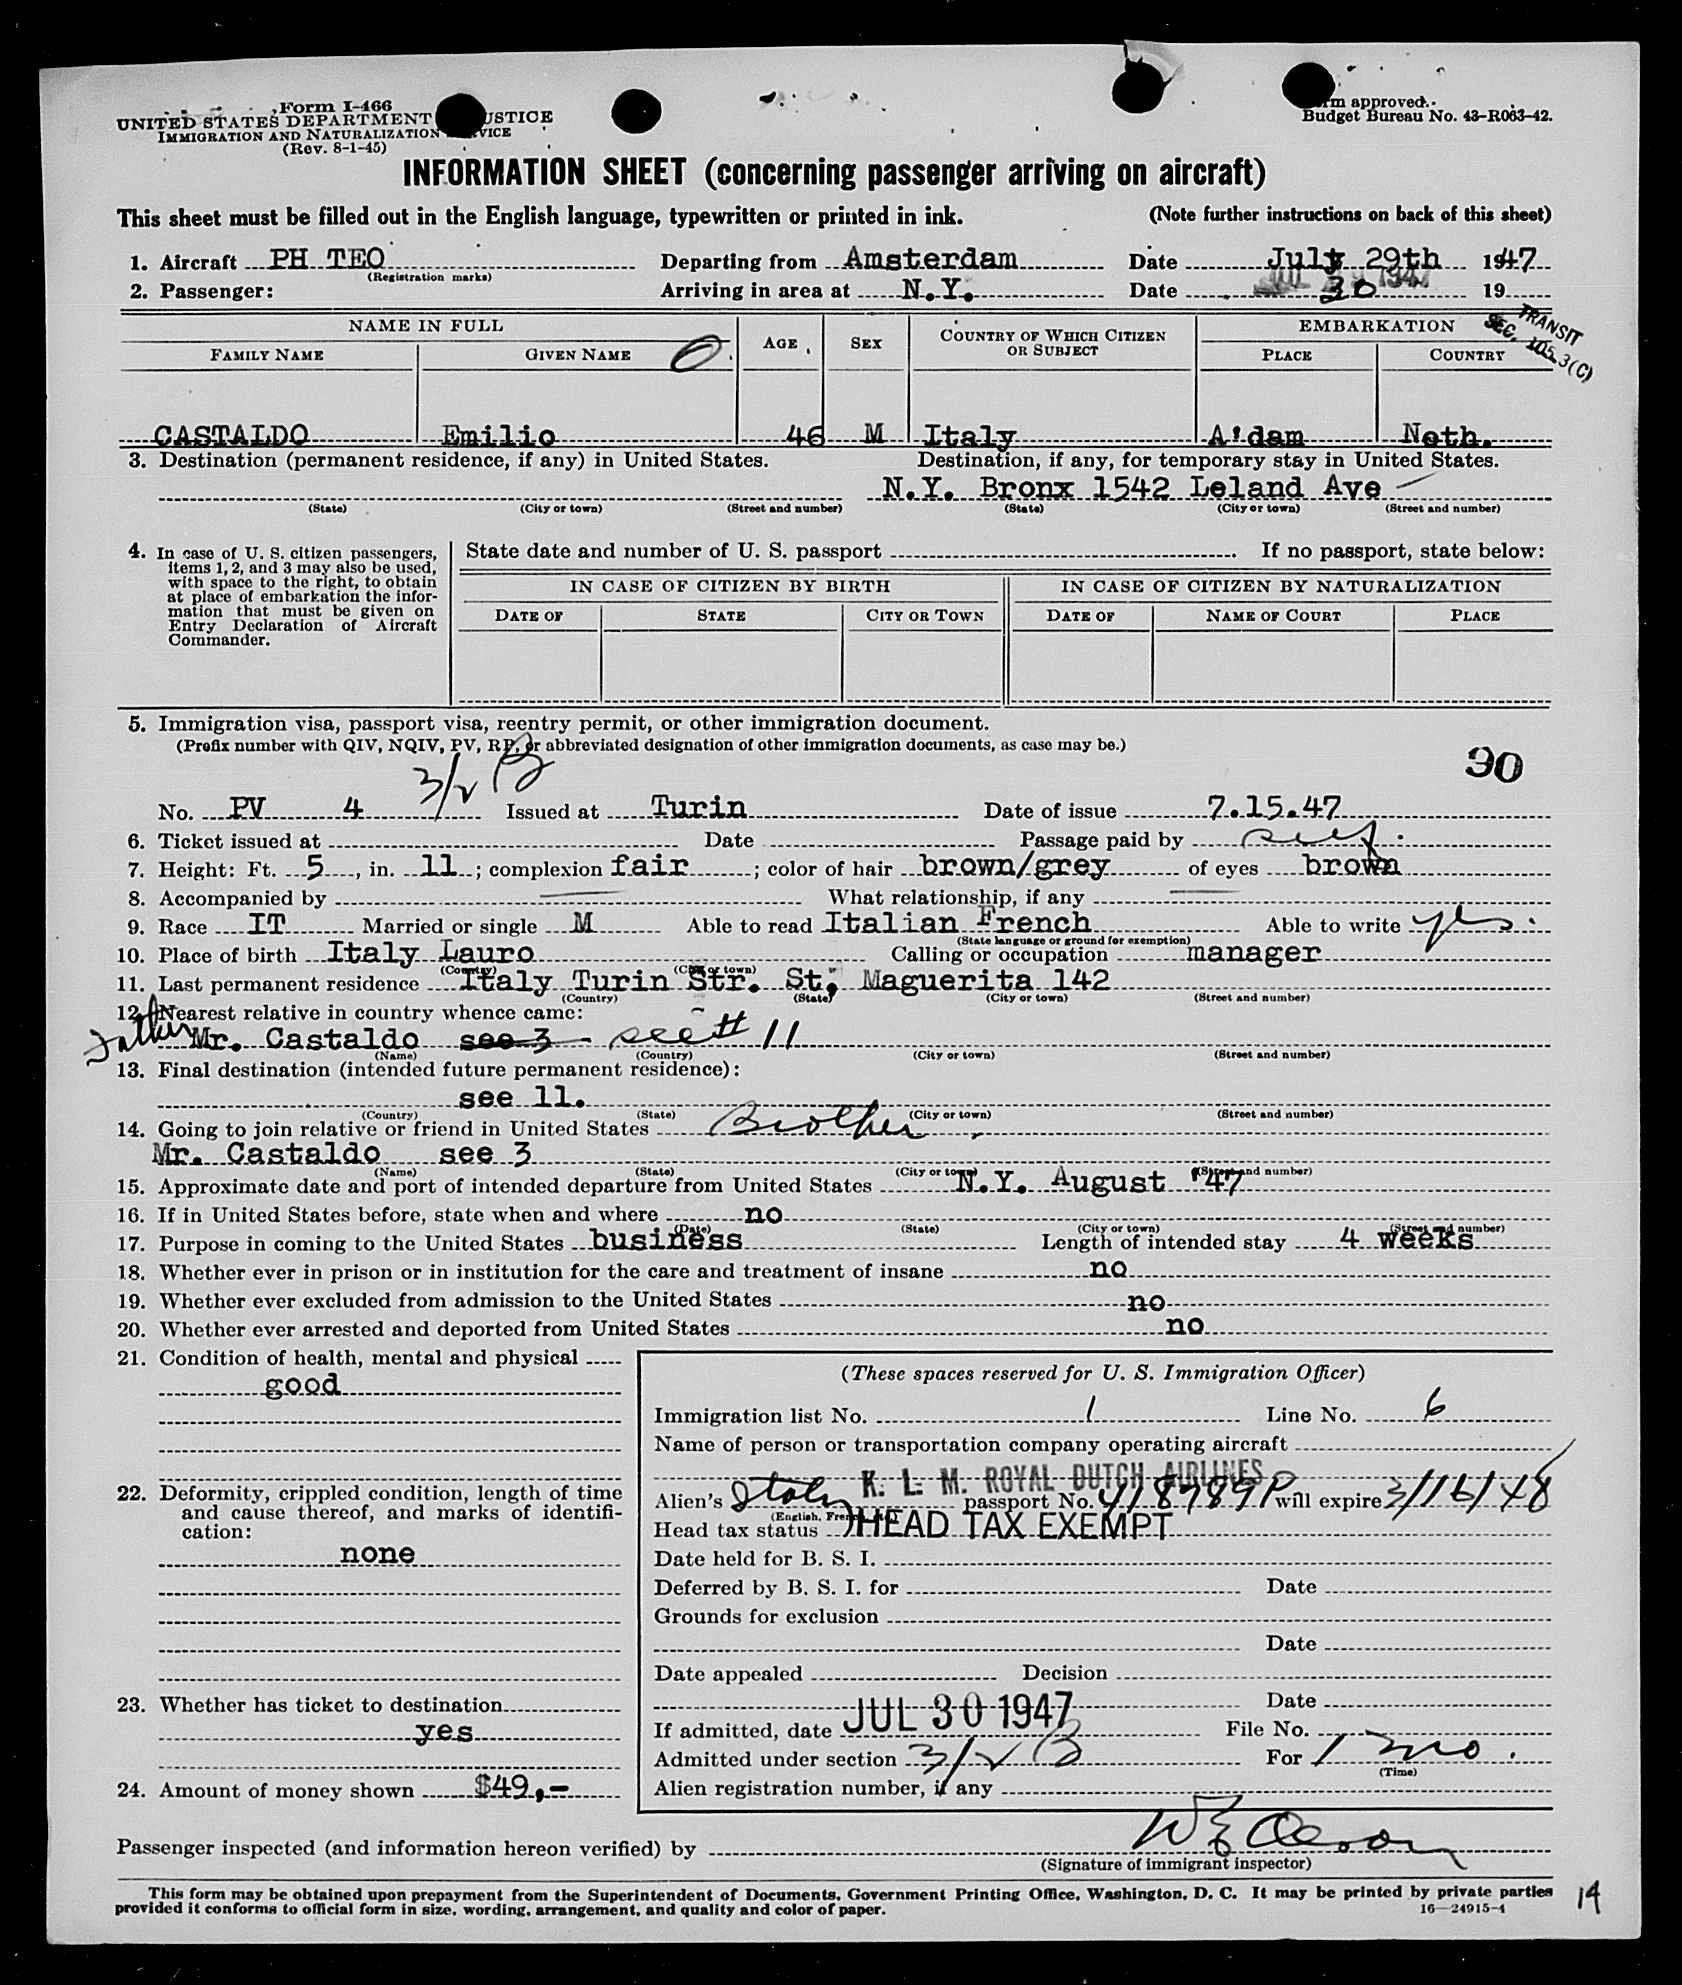 Form I-466
UNITED STATES DEPARTMENT JUSTICE
IMMIGRATION AND NATURALIZATION SERVICE
(Rev. 8-1-45)
Form approved.
Budget Bureau No. 43-R063-42.
INFORMATION SHEET (concerning passenger arriving on aircraft)
This sheet must be filled out in the English language, typewritten or printed in ink. (Note further instructions on back of this sheet)
1. Aircraft PH TEO Departing from Amsterdam Date July 29th 1947
(Registration marks)
2. Passenger: Arriving in area at N.Y. Date 30 19
NAME IN FULL AGE SEX COUNTRY OF WHICH CITIZEN OR SUBJECT EMBARKATION
FAMILY NAME GIVEN NAME PLACE COUNTRY
TRANSIT
SEC. 105.3(C)
CASTALDO Emilio 46 M Italy A'dam Neth.
3. Destination (permanent residence, if any) in United States. Destination, if any, for temporary stay in United States.
N.Y. Bronx 1542 Leland Ave
(State) (City or town) (Street and number) (State) (City or town) (Street and number)
4. In case of U. S. citizen passengers,
items 1, 2, and 3 may also be used,
with space to the right, to obtain
at place of embarkation the infor-
mation that must be given on
Entry Declaration of Aircraft
Commander.
State date and number of U. S. passport . If no passport, state below:
IN CASE OF CITIZEN BY BIRTH IN CASE OF CITIZEN BY NATURALIZATION
DATE OF STATE CITY OR TOWN DATE OF NAME OF COURT PLACE
5. Immigration visa, passport visa, reentry permit, or other immigration document.
(Prefix number with QIV, NQIV, PV, RP, or abbreviated designation of other immigration documents, as case may be.)
30
3/2 B
No. PV 4 Issued at Turin Date of issue 7.15.47
6. Ticket issued at Date Passage paid by self.
7. Height: Ft. 5, in. 11; complexion fair; color of hair brown/grey of eyes brown
8. Accompanied by — What relationship, if any —
9. Race IT Married or single M Able to read Italian French Able to write yes.
(State language or ground for exemption)
10. Place of birth Italy Lauro Calling or occupation manager
(Country) (City or town)
11. Last permanent residence Italy Turin Str. St. Maguerita 142
(Country) (State) (City or town) (Street and number)
12. Nearest relative in country whence came:
Father Mr. Castaldo see 3 see # 11
(Name) (Country) (City or town) (Street and number)
13. Final destination (intended future permanent residence):
see 11.
(Country) (State) (City or town) (Street and number)
14. Going to join relative or friend in United States Brother
Mr. Castaldo see 3
(Name) (State) (City or town) (Street and number)
15. Approximate date and port of intended departure from United States N.Y. August '47
16. If in United States before, state when and where no
(Date) (State) (City or town) (Street and number)
17. Purpose in coming to the United States business Length of intended stay 4 weeks
18. Whether ever in prison or in institution for the care and treatment of insane no
19. Whether ever excluded from admission to the United States no
20. Whether ever arrested and deported from United States no
21. Condition of health, mental and physical
good
22. Deformity, crippled condition, length of time
and cause thereof, and marks of identifi-
cation:
none
23. Whether has ticket to destination
yes
24. Amount of money shown $49,-
(These spaces reserved for U. S. Immigration Officer)
Immigration list No. 1 Line No. 6
Name of person or transportation company operating aircraft
K. L. M. ROYAL DUTCH AIRLINES
Alien's Italy passport No. 418789P will expire 3/16/48
(English, French, etc.)
Head tax status HEAD TAX EXEMPT
Date held for B. S. I.
Deferred by B. S. I. for Date
Grounds for exclusion
Date
Date appealed Decision
Date
If admitted, date JUL 30 1947 File No.
Admitted under section 3/2 B For 1 mo.
(Time)
Alien registration number, if any
Passenger inspected (and information hereon verified) by
(Signature of immigrant inspector)
This form may be obtained upon prepayment from the Superintendent of Documents, Government Printing Office, Washington, D. C. It may be printed by private parties
provided it conforms to official form in size, wording, arrangement, and quality and color of paper.
16—24915-1
14